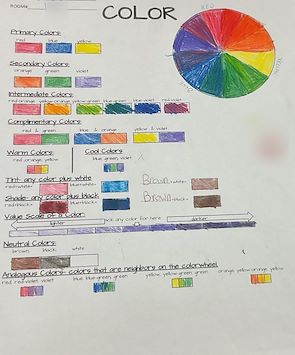 ROOM#
COLOR
RED
Primary Colors:
red blue yellow
Secondary Colors:
orange green violet
Intermediate Colors:
red-orange yellow-orange yellow-green blue-green blue-violet red-violet
Complimentary Colors:
red & green blue & orange yellow & violet
Warm Colors: Cool Colors:
red, orange, yellow blue, green, violet
Tint- any color plus white
red+white= blue+white= Brown+white=
Shade- any color plus black
red+black= blue+black= Brown+black=
Value Scale of a Color: pick any color for here
lighter darker
Neutral Colors:
brown black white
Analogous Colors- colors that are neighbors on the colorwheel.
red, red-violet, violet blue, blue-green, green yellow, yellow-green, green orange, yellow-orange, yellow